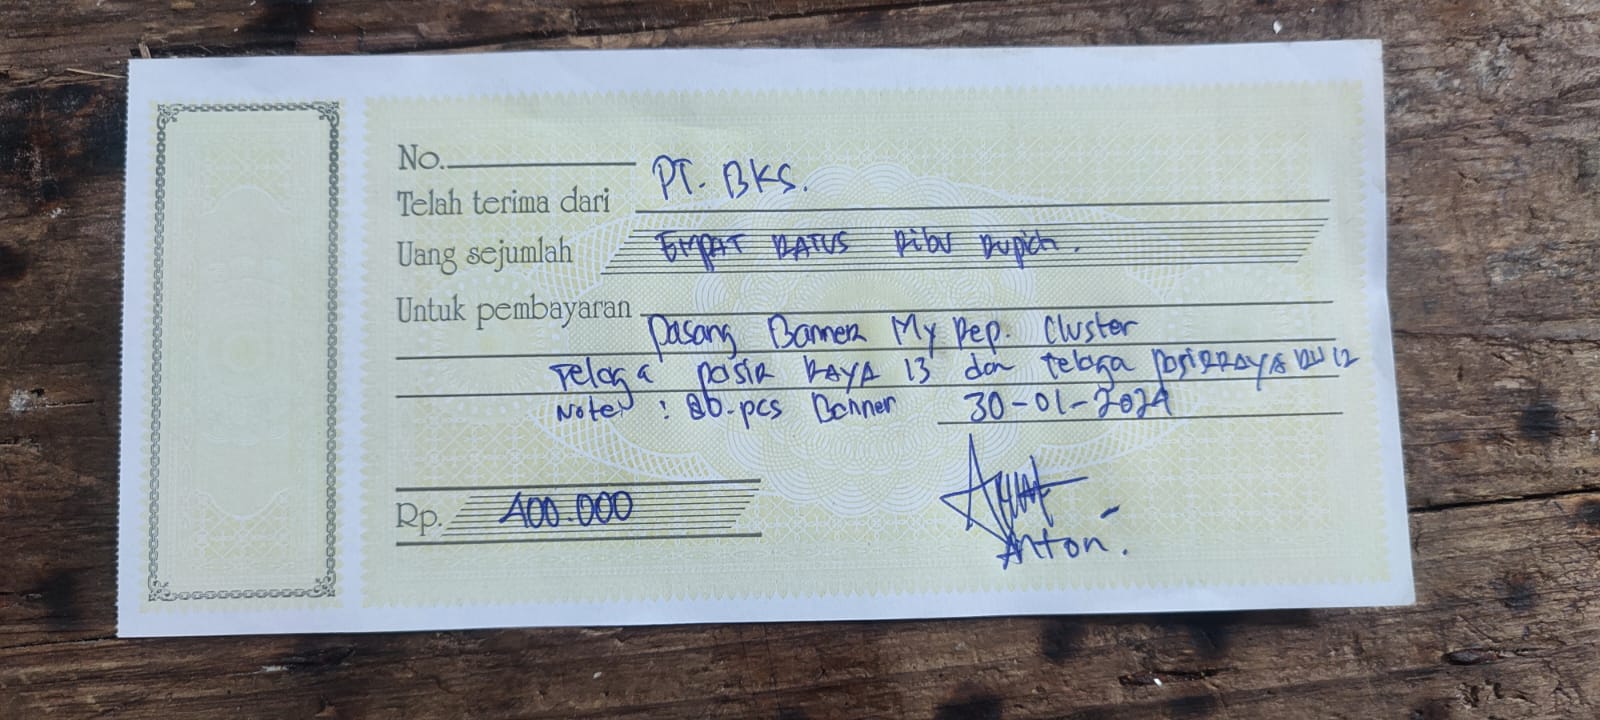 No.
Telah terima dari PT. BKS.
Uang sejumlah EMPAT RATUS Ribu Rupiah.
Untuk pembayaran
Pasang Banner My Rep. Cluster
Telaga pasir RAYA 13 dan telaga pasir RAYA
Note : pcs Banner 30-01-2024
Rp. 400.000
Anton.